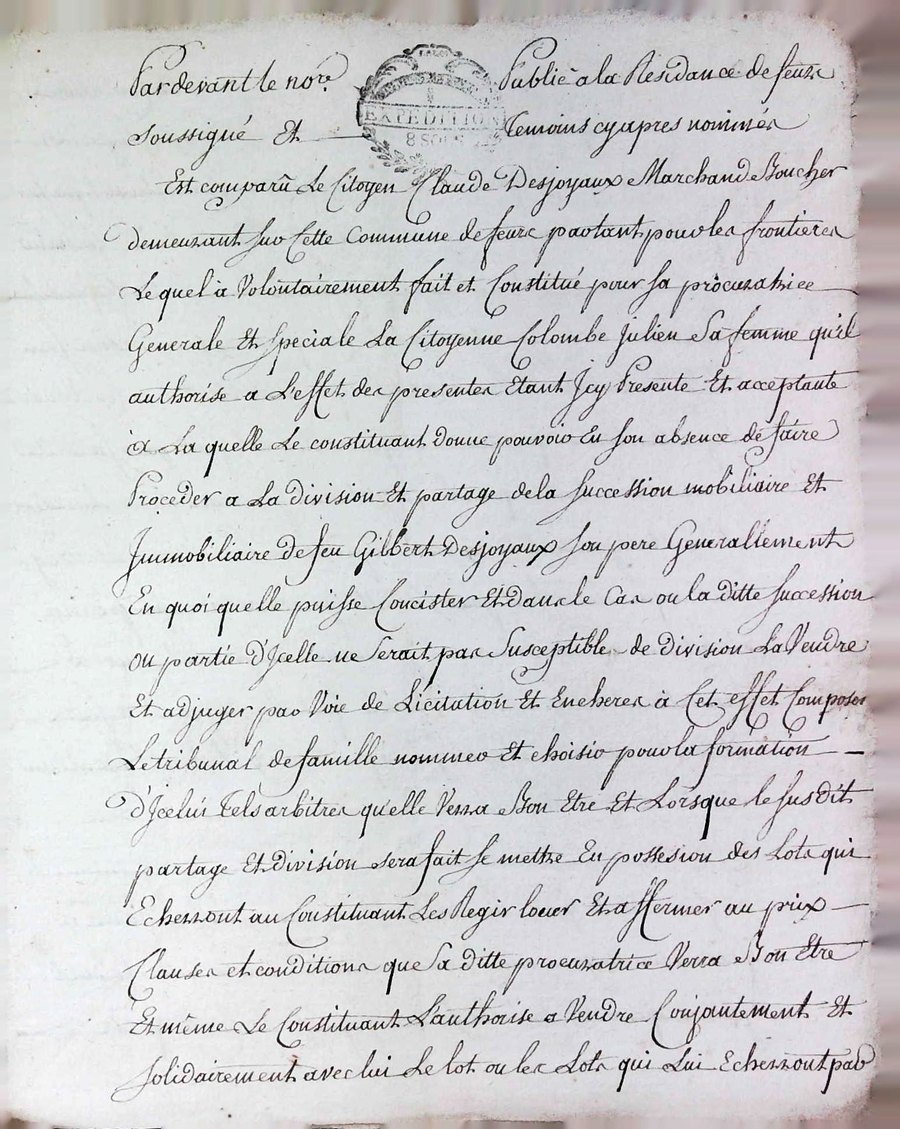 Pardevant le nore. Publié a la Residance de feurs
EXPEDITION
8 SOLS
soussigné Et Temoins cyapres nommés
Est comparû Le Citoyen Claude Desjoyaux Marchand Boucher
demeurant sur Cette Commune de feurs partant pour les frontieres
Le quel à Volontairement fait et Constitué pour sa procuratrice
Generale Et speciale La Citoyenne Colombe Julien Sa femme qu'il
authorise a L'effet des presentes Etant Icy Presente Et acceptante
à La quelle Le constituant donne pouvoir En son absence de faire
Proceder a La division Et partage dela succession mobiliaire Et
Immobiliaire de feu Gilbert Desjoyaux son pere Generallement
En quoi quelle puisse Concister Et dans le Cas ou la ditte succession
ou partie d'Icelle ne serait pas Susceptible de division La Vendre
Et adjuger par Voie de Licitation Et Encheres à Cet effet Composer
Le tribunal de famille nommer Et choisir pour la formation
d'Icelui tels arbitres qu'elle Verra Bon Etre Et Lorsque le susdit
partage Et division sera fait se mettre En possesion des Lots qui
Echerront au Constituant Les Regir louer Et affermer au prix
Clauses et conditions que Sa ditte procuratrice Verra Bon Etre
Et même Le Constituant L'authorise a Vendre Conjontement Et
solidairement avec lui Le lot ou les Lots qui Lui Echerront par